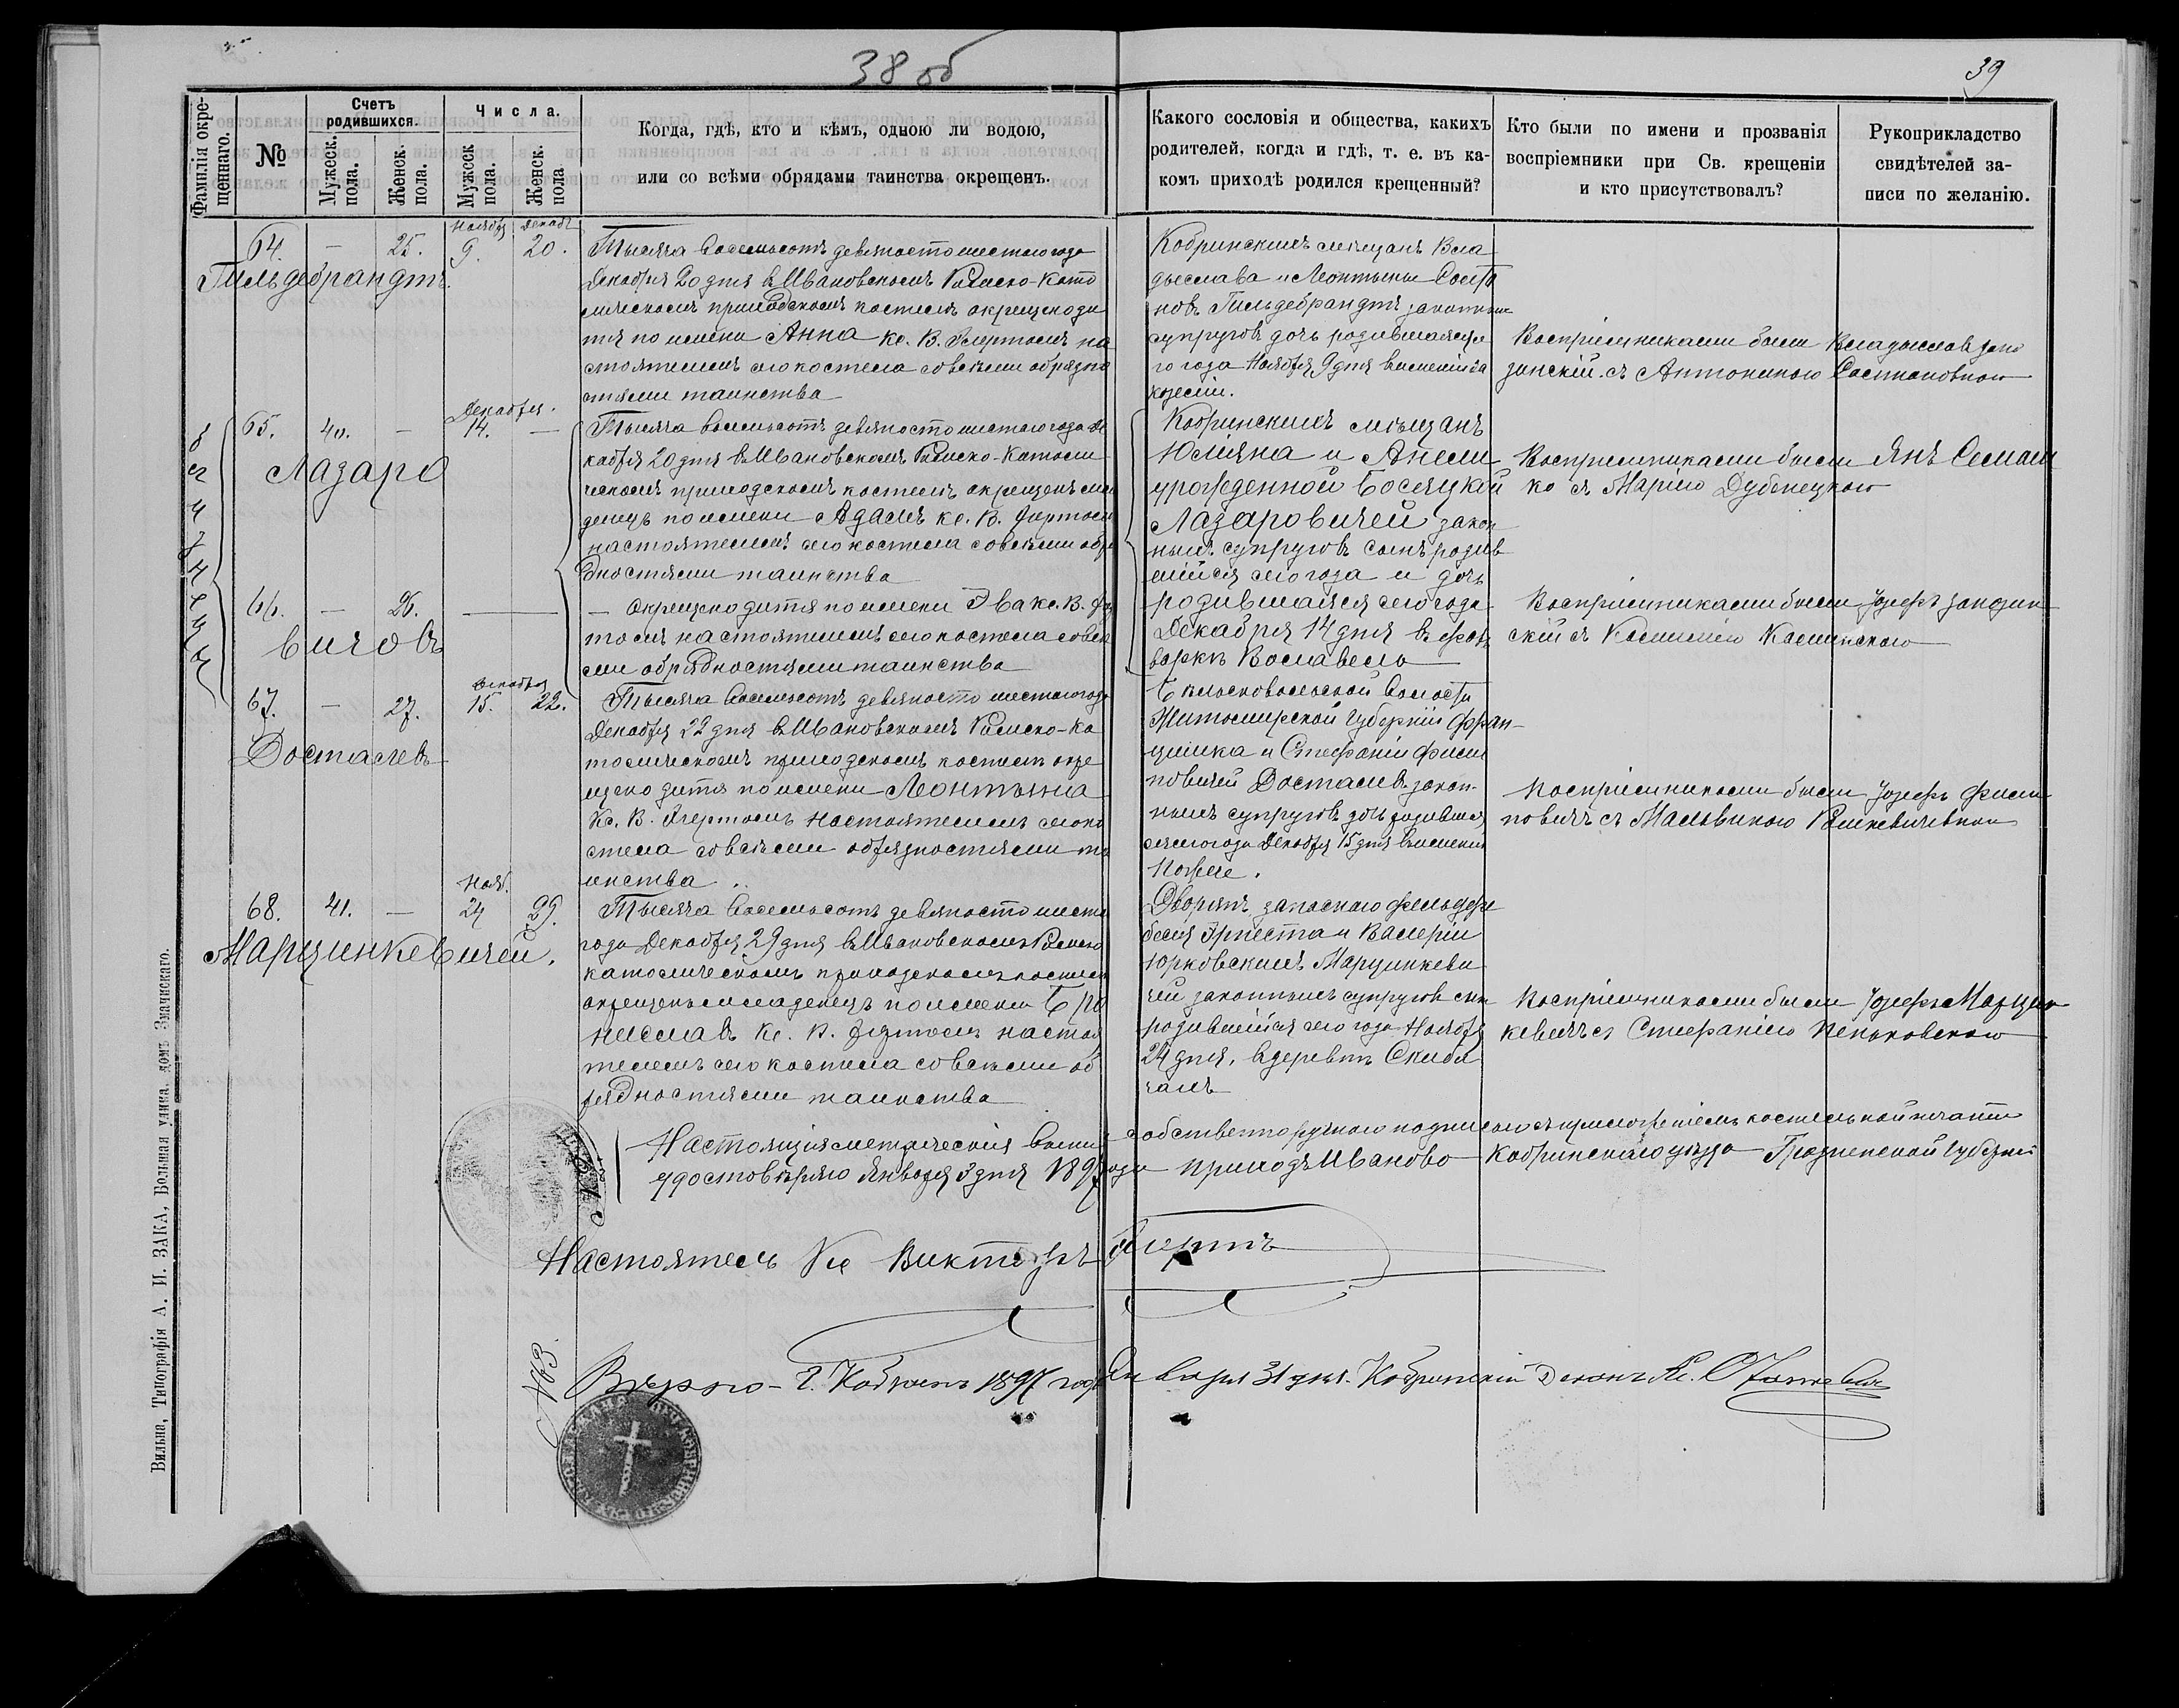 38 об
39
Фамилія окре-
щеннаго.
№
Счетъ
родившихся.
Мужеск.
пола.
Женск.
пола.
Числа.
Мужеск
пола.
Женск.
пола
Когда, гдѣ, кто и кѣмъ, одною ли водою,
или со всѣми обрядами таинства окрещенъ.
Какого сословія и общества, какихъ
родителей, когда и гдѣ, т. е. въ ка-
комъ приходѣ родился крещенный?
Кто были по имени и прозванія
воспріемники при Св. крещеніи
и кто присутствовалъ?
Рукоприкладство
свидѣтелей за-
писи по желанію.
64. — 25. Ноября 9. Декабр 20.
Гильдебрандтъ.
Тысяча восемьсотъ девяносто шестаго года
Декабря 20 дня въ Ивановскомъ Римско-Като
лическомъ приходскомъ костелѣ окрещено ди
тя по имени Анна кс. В. на
стоятелемъ сего костела со всѣми обрядно
стями таинства
Кобринскихъ мѣщанъ Вла
дыслава и Леонтыны
новъ Гильдебрандтъ законныхъ
супруговъ дочь родившаяся се
го года Ноября 9 дня въ имѣніи За
Воспріемниками были Владыславъ
съ Антониною
65. 40. — Декабря. 14. —
Лазаро
Близнецы
Тысяча восемьсотъ девяносто шестаго года Де
кабря 20 дня въ Ивановскомъ Римско-Католи
ческомъ приходскомъ костелѣ окрещенъ мла
денецъ по имени Адамъ кс. В.
настоятелемъ сего костела со всѣми обря
дностями таинства
Кобринскихъ мѣщанъ
Юліяна и Анели
урожденной Босяцкой
Лазаровичей закон
ныхъ супруговъ сынъ родив
шійся сего года и дочь
родившаяся сего года
Декабря 14 дня въ фоль
варкѣ Вославелю
Воспріемниками были Янъ Семаш
ко съ Маріею Дубенецкою
66. — 26. —
вичовъ
— Окрещено дитя по имени Эва кс. В.
настоятелемъ сего костела со всѣ
ми обрядностями таинства
Воспріемниками были Іозефъ
скій съ Каминскою
67. — 27. Декабря 15. 22.
Досталевъ
Тысяча восемьсотъ девяносто шестаго года
Декабря 22 дня въ Ивановскомъ Римско-Ка
толическомъ приходскомъ костелѣ окре
щено дитя по имени Леонтына
Кс. В. настоятелемъ сего ко
стела со всѣми обрядностями та
инства.
волости
Житомирской Губерніи Фран-
цишка и Стефаніи Фили
повичей Досталевъ закон-
ныхъ супруговъ дочь родившая
ся сего года Декабря 15 дня въ имѣніи
Воспріемниками были Іозефъ Фили
повичъ съ Мальвиною
68. 41. — Нояб. 24 29.
Марцинкевичей.
Тысяча восемьсотъ девяносто шеста
года Декабря 29 дня въ Ивановскомъ Римско
католическомъ приходскомъ костелѣ
окрещенъ младенецъ по имени Бро
ниславъ Кс. В. настоя
телемъ сего костела со всѣми об
рядностями таинства
Дворянъ запаснаго фельдфе
беля Эрнеста и Валеріи
Юрковскихъ Марцинкеви
чей законныхъ супруговъ сынъ
родившійся сего года Ноября
24 дня, въ деревнѣ Скиби
чахъ
Воспріемниками были Іозефъ Марцин
кевичъ съ Стефаніею Пеньковскою
М.П.
Настоящія метрическія собственноручною подписью съ приложеніемъ костельной печати
удостовѣряю Января 3 дня 1897 года приходъ Иваново Кобринскаго уѣзда Гродненской Губерніи
Настоятель Кс Викторъ
М.П.
Вѣрно - Г. Кобринъ 1897 года Января 31 дня. Кобринскій Деканъ Кс.
Вильна, Типографія А. И. ЗАКА, Большая улица, домъ Значнскаго.